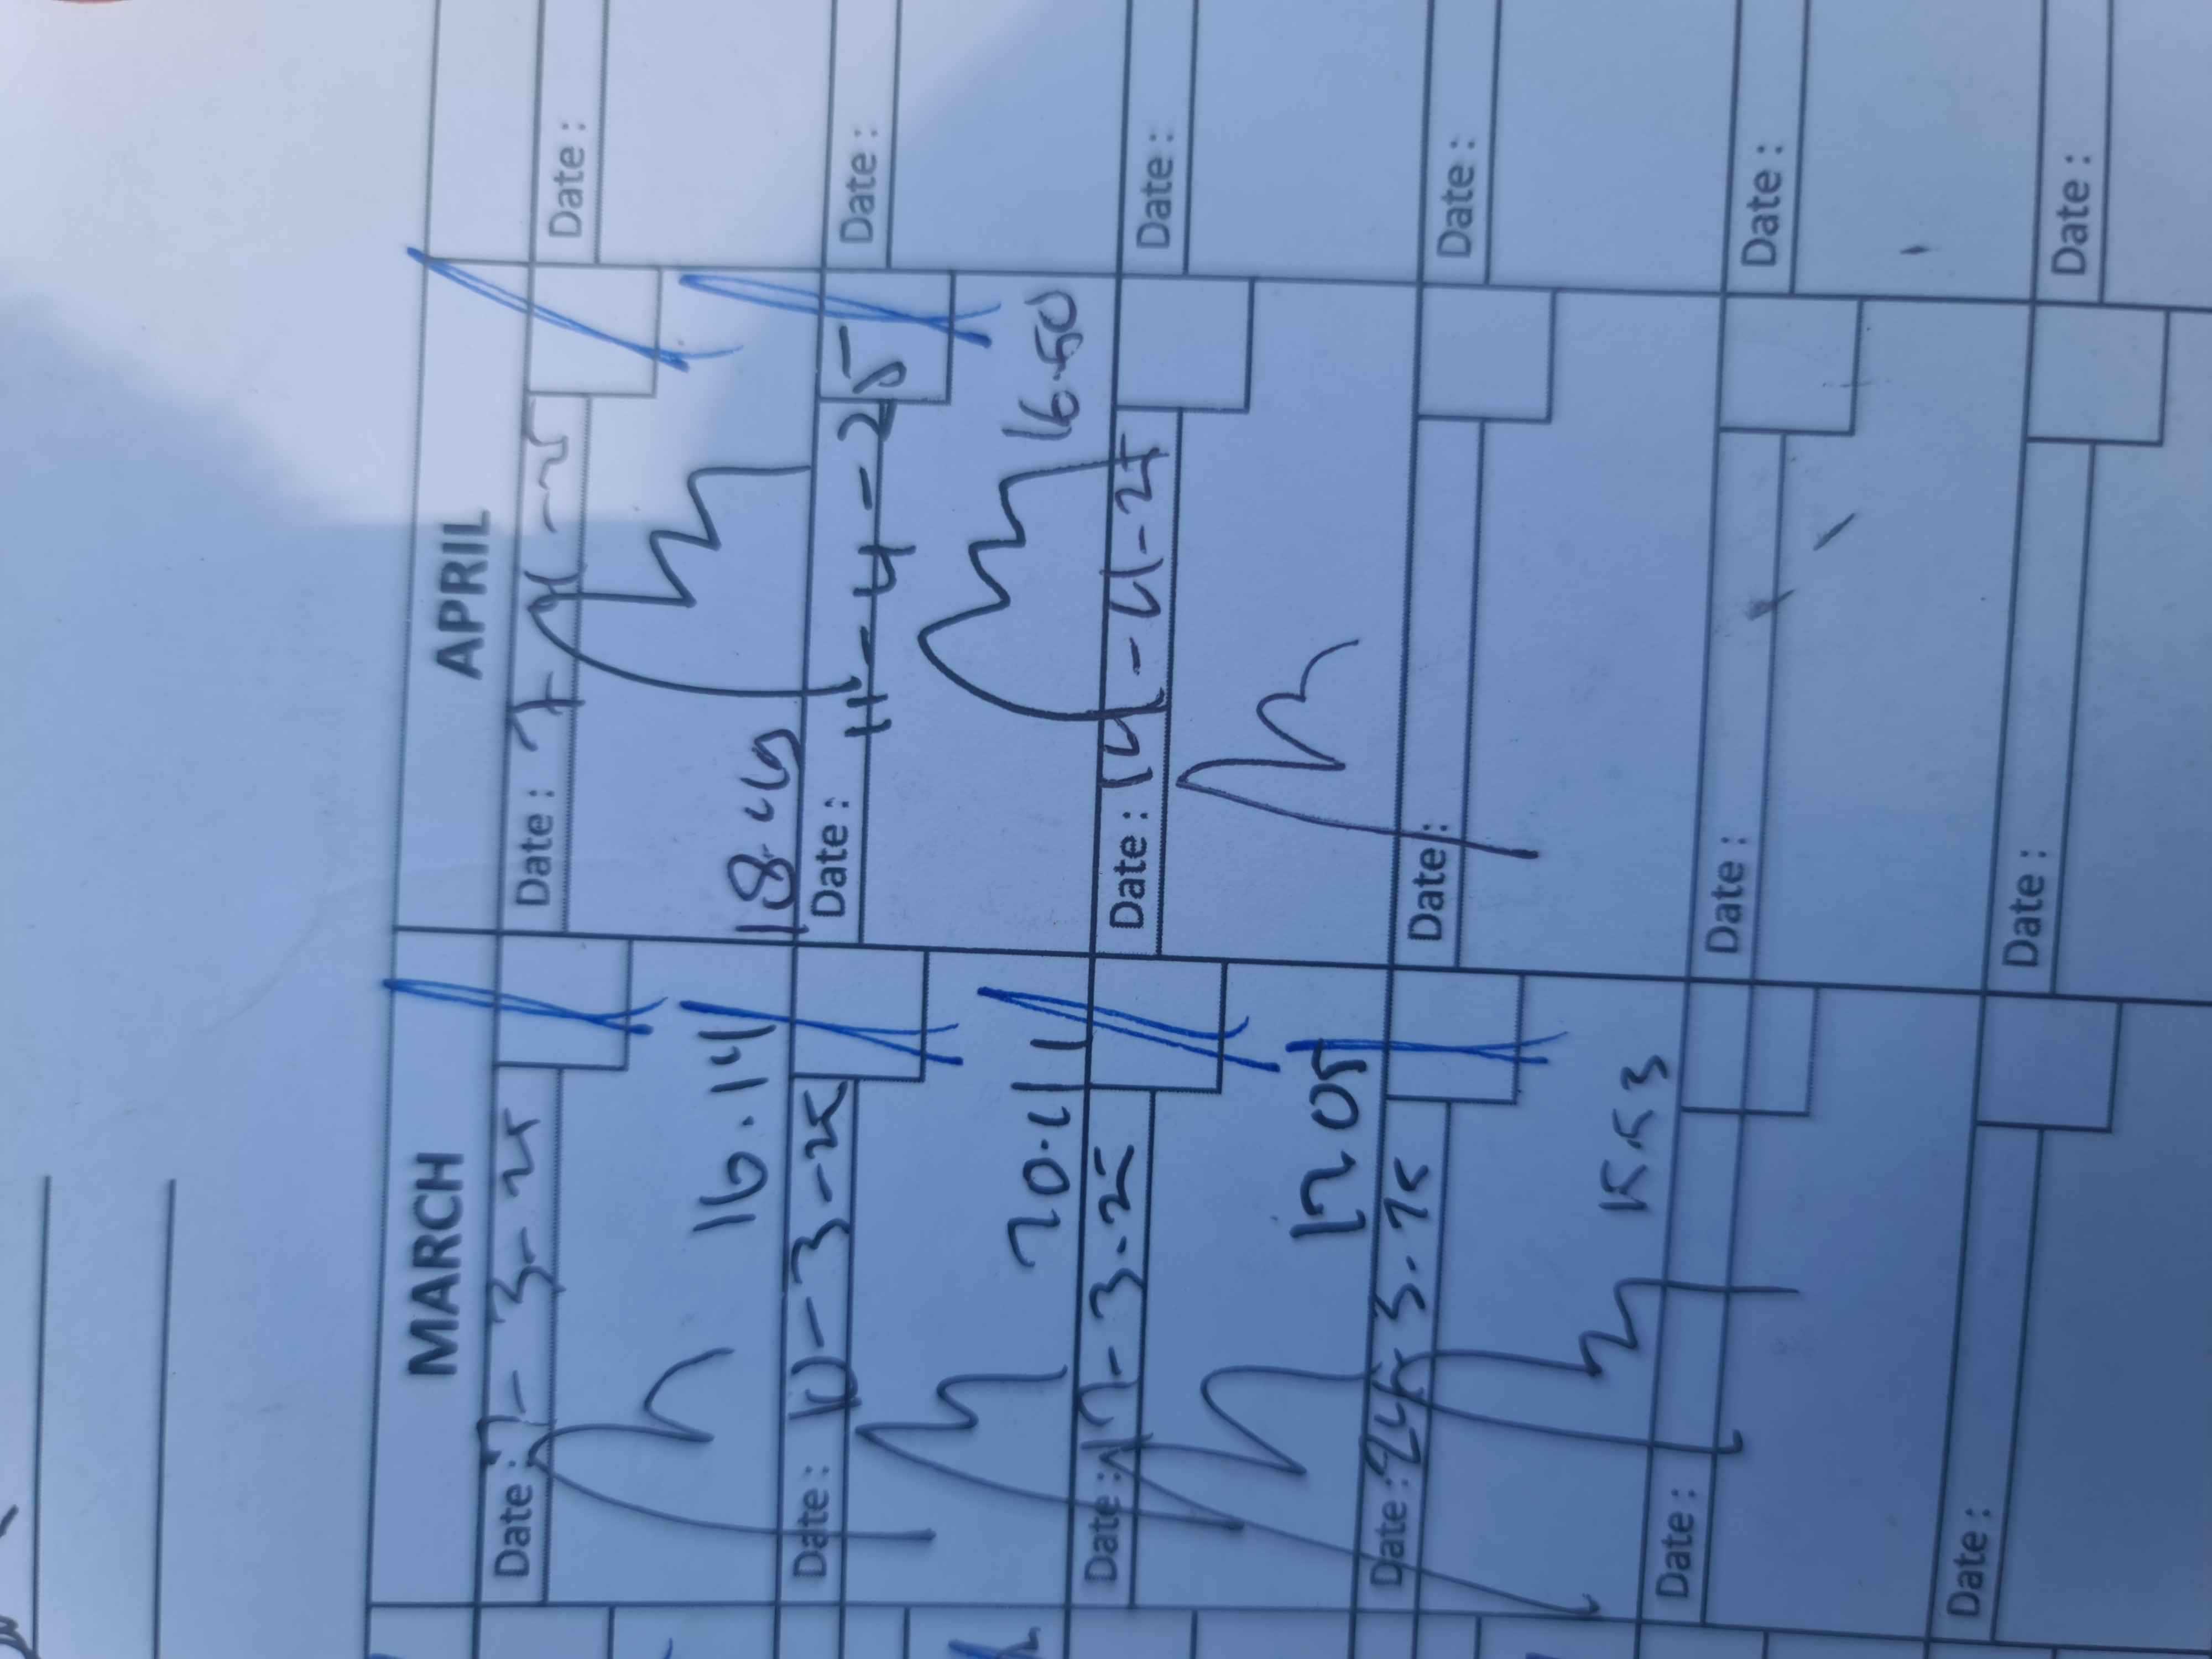 MARCH
Date : 7-3-25
16.14
Date : 10-3-25
Date : 17-3-25
17.05
Date : 24-3-25
15.53
Date :
Date :
APRIL
Date : 7-4-25
Date : 11-4-25
16.50
Date : 14-4-25
Date :
Date :
Date :
Date :
Date :
Date :
Date :
Date :
Date :